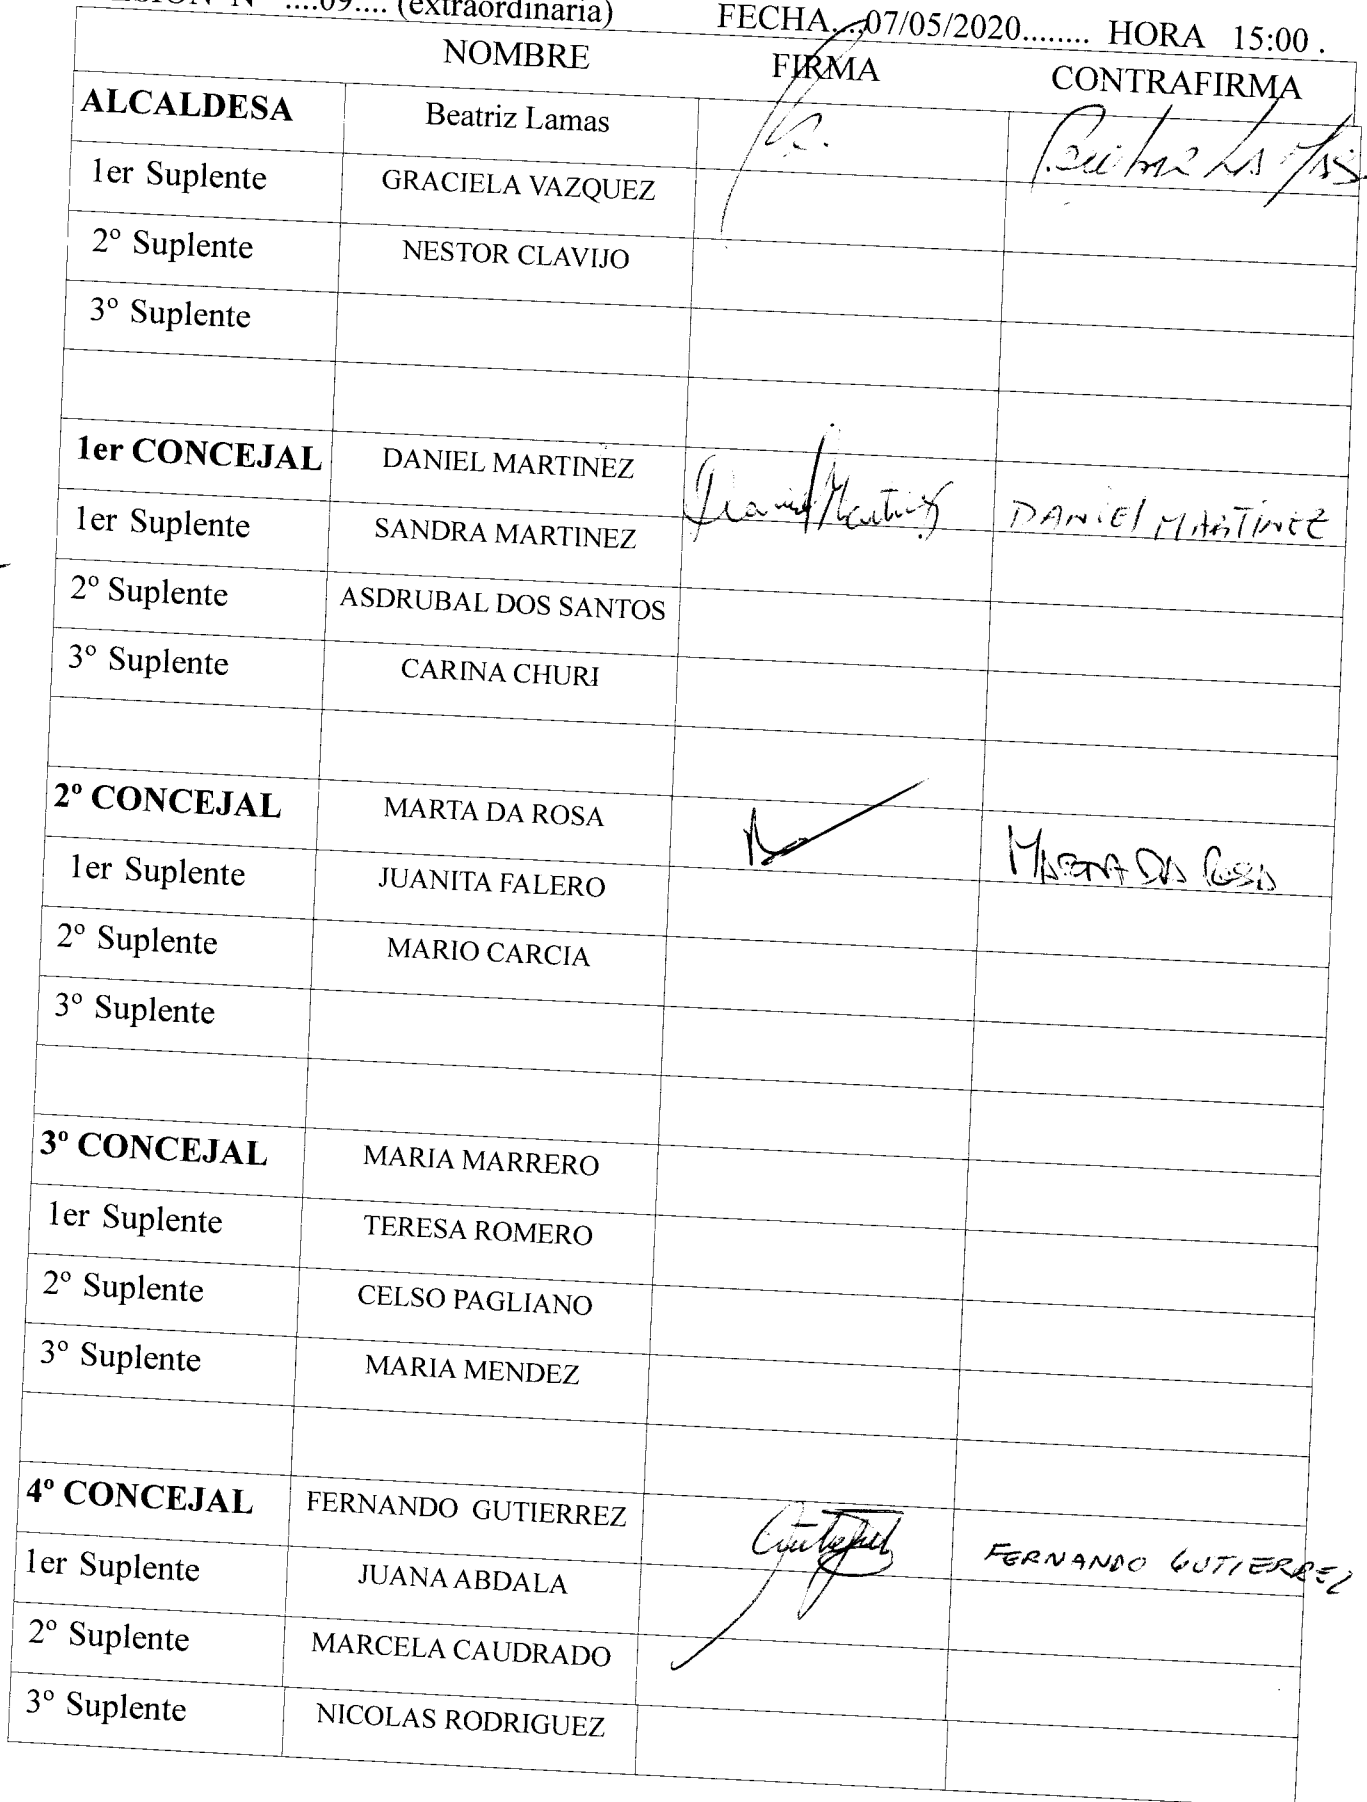 SESIÓN N° ....09.... (extraordinaria) FECHA....07/05/2020........ HORA 15:00 .
NOMBRE FIRMA CONTRAFIRMA
ALCALDESA Beatriz Lamas Beatriz LAMAS.
1er Suplente GRACIELA VAZQUEZ
2º Suplente NESTOR CLAVIJO
3º Suplente
1er CONCEJAL DANIEL MARTINEZ Daniel Martinez DANIEl MARTINEZ
1er Suplente SANDRA MARTINEZ
2º Suplente ASDRUBAL DOS SANTOS
3º Suplente CARINA CHURI
2º CONCEJAL MARTA DA ROSA MARTA DA ROSA
1er Suplente JUANITA FALERO
2º Suplente MARIO CARCIA
3º Suplente
3º CONCEJAL MARIA MARRERO
1er Suplente TERESA ROMERO
2º Suplente CELSO PAGLIANO
3º Suplente MARIA MENDEZ
4º CONCEJAL FERNANDO GUTIERREZ FERNANDO GUTIERREZ
1er Suplente JUANA ABDALA
2º Suplente MARCELA CAUDRADO
3º Suplente NICOLAS RODRIGUEZ